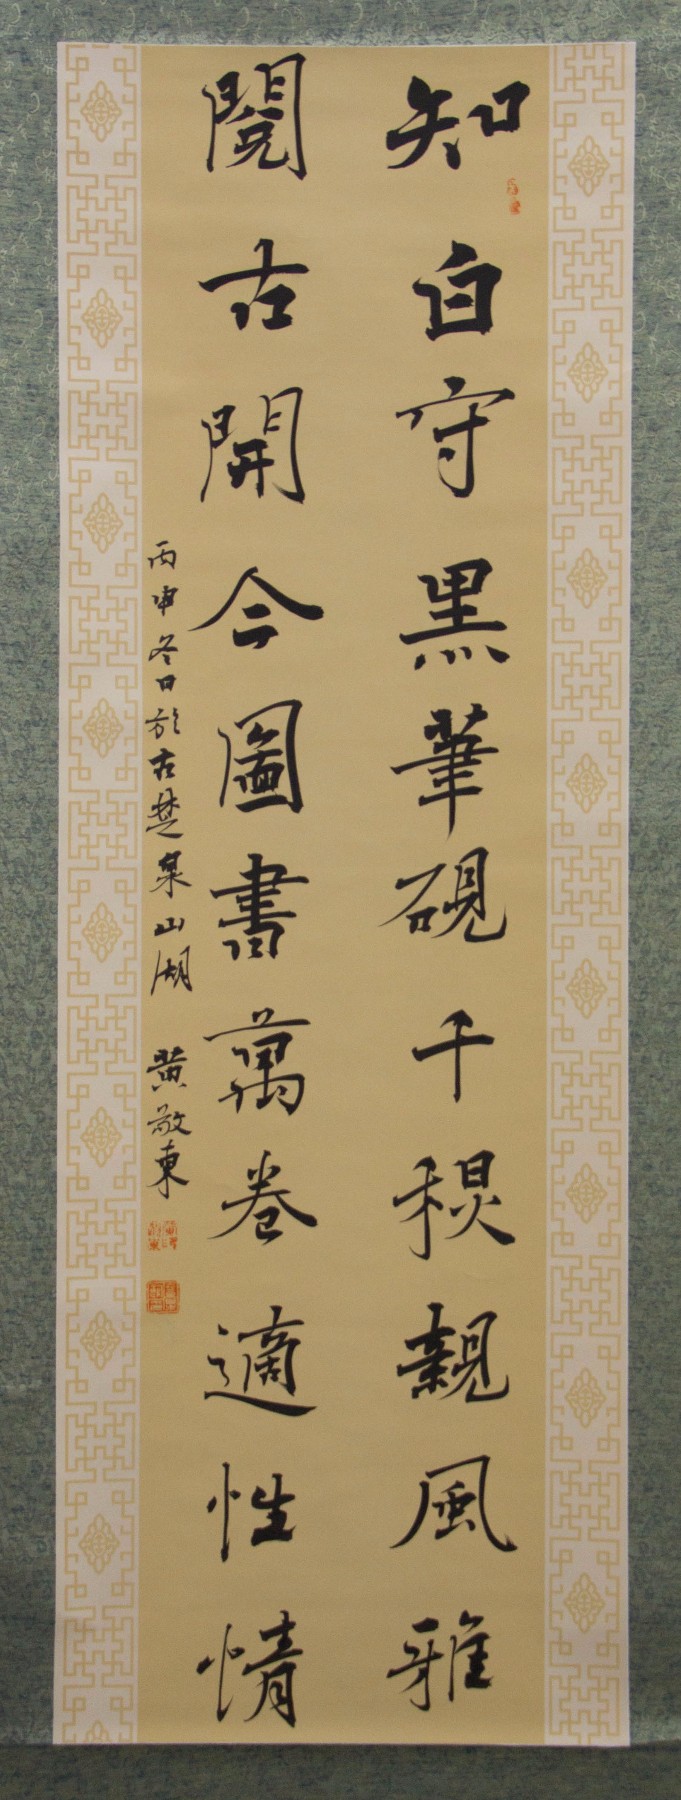 知白守黑筆硯千秋親風雅
閱古開今圖書萬卷適性情
丙申冬日於古楚泉山湖 黃敬東